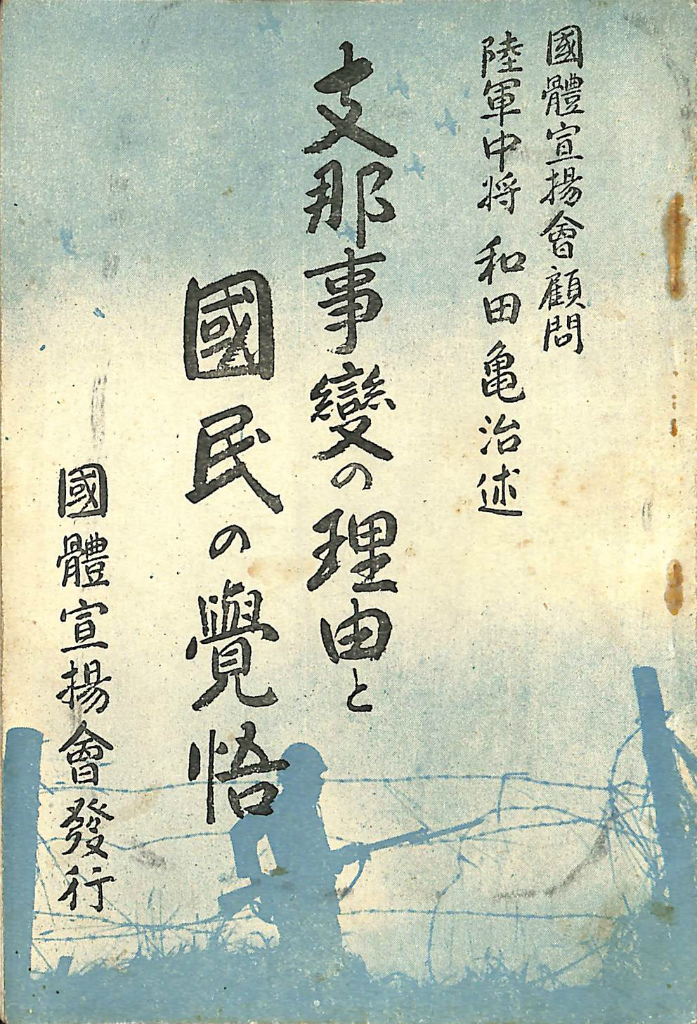 國體宣揚會顧問
陸軍中将 和田亀治述
支那事變の理由と
國民の覺悟
國體宣揚會發行